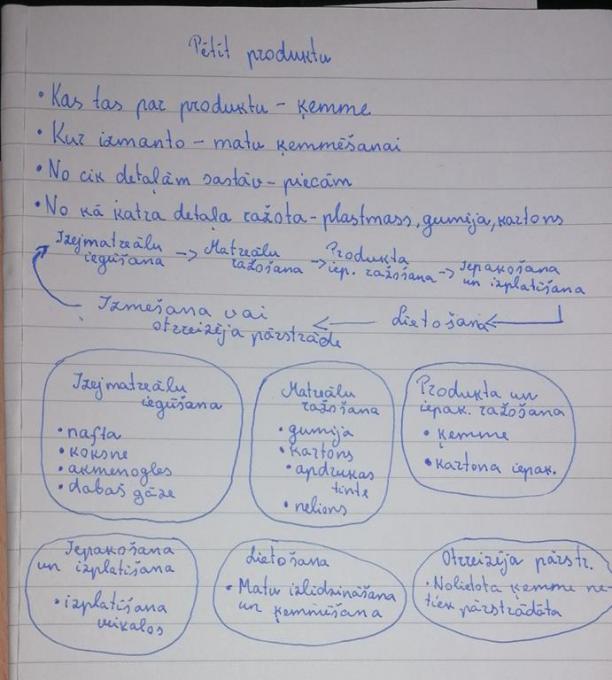 Pētīt produktu
• Kas tas par produktu - ķemme
• Kur izmanto - matu ķemmēšanai
• No cik detaļām sastāv - piecām
• No kā katra detaļa ražota - plastmass, gumija, kartons
Izejmatreālu iegūšana -> Matreālu ražošana -> Produkta iep. ražošana -> Iepakošana un izplatīšana
Izmešana vai otrreizēja pārstrāde <- Lietošana <-
Izejmatreālu
iegūšana
• nafta
• koksne
• akmeņogles
• dabas gāze
Matreālu
ražošana
• gumija
• kartons
• apdrukas
tinte
• neilons
Produkta un
iepak. ražošana
• ķemme
• kartona iepak.
Iepakošana
un izplatīšana
• izplatīšana
veikalos
Lietošana
• Matu izlīdzināšana
un ķemmēšana
Otrreizēja pārstr.
• Nolietota ķemme ne-
tiek pārstrādāta